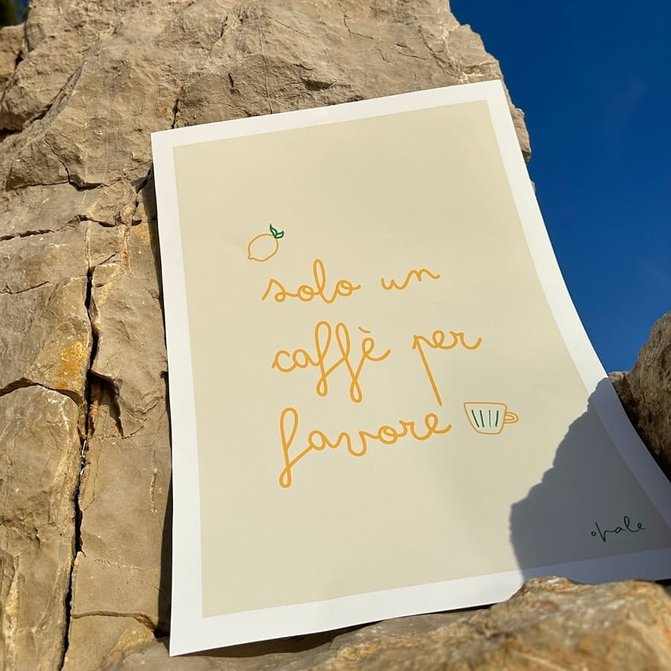 solo un
caffè per
favore
ovale